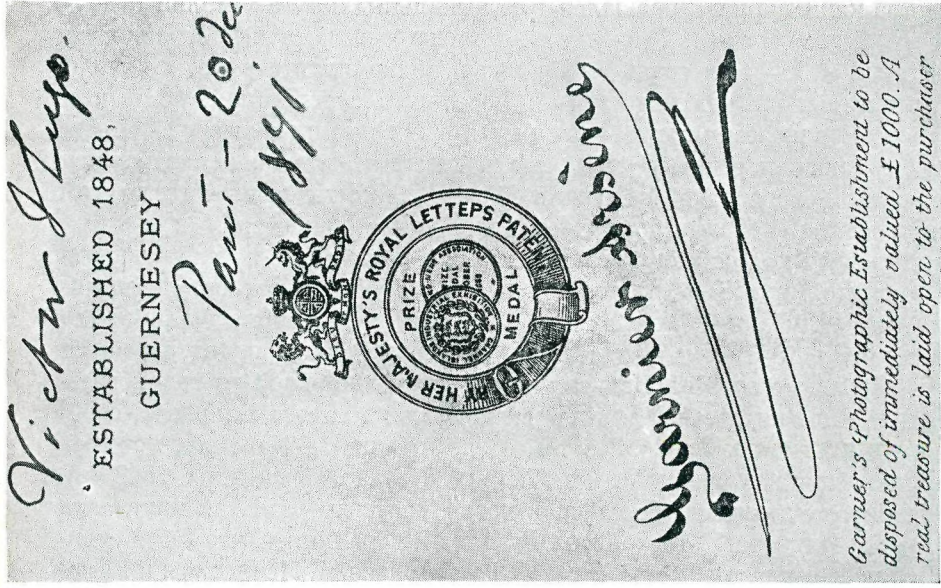 Victor Hugo.
ESTABLISHED 1848,
GUERNESEY
Paris — 20 déc
BY HER MAJESTY'S ROYAL LETTEPS PATENT
PRIZE
MEDAL
Garnier Arsène
Garnier's Photographic Establishment to be
disposed of immediately valued £ 1000. A
real treasure is laid open to the purchaser